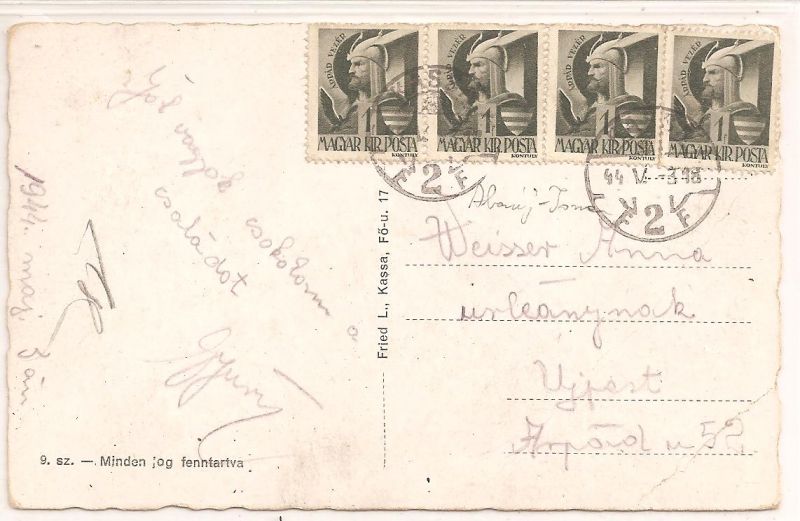 ÁRPÁD VEZÉR
1f
MAGYAR KIR. POSTA
KONTULY
ÁRPÁD VEZÉR
1f
MAGYAR KIR. POSTA
KONTULY
ÁRPÁD VEZÉR
1f
MAGYAR KIR. POSTA
KONTULY
ÁRPÁD VEZÉR
1f
MAGYAR KIR. POSTA
KONTULY
2
44 V -3 18
2
Jól vagyok csókolom a
családot
Gyuri
1944. máj. 3án
Fried L., Kassa, Fő-u. 17
Weisser Anna
urleánynak
Ujpest
Árpád u 52
9. sz. — Minden jog fenntartva